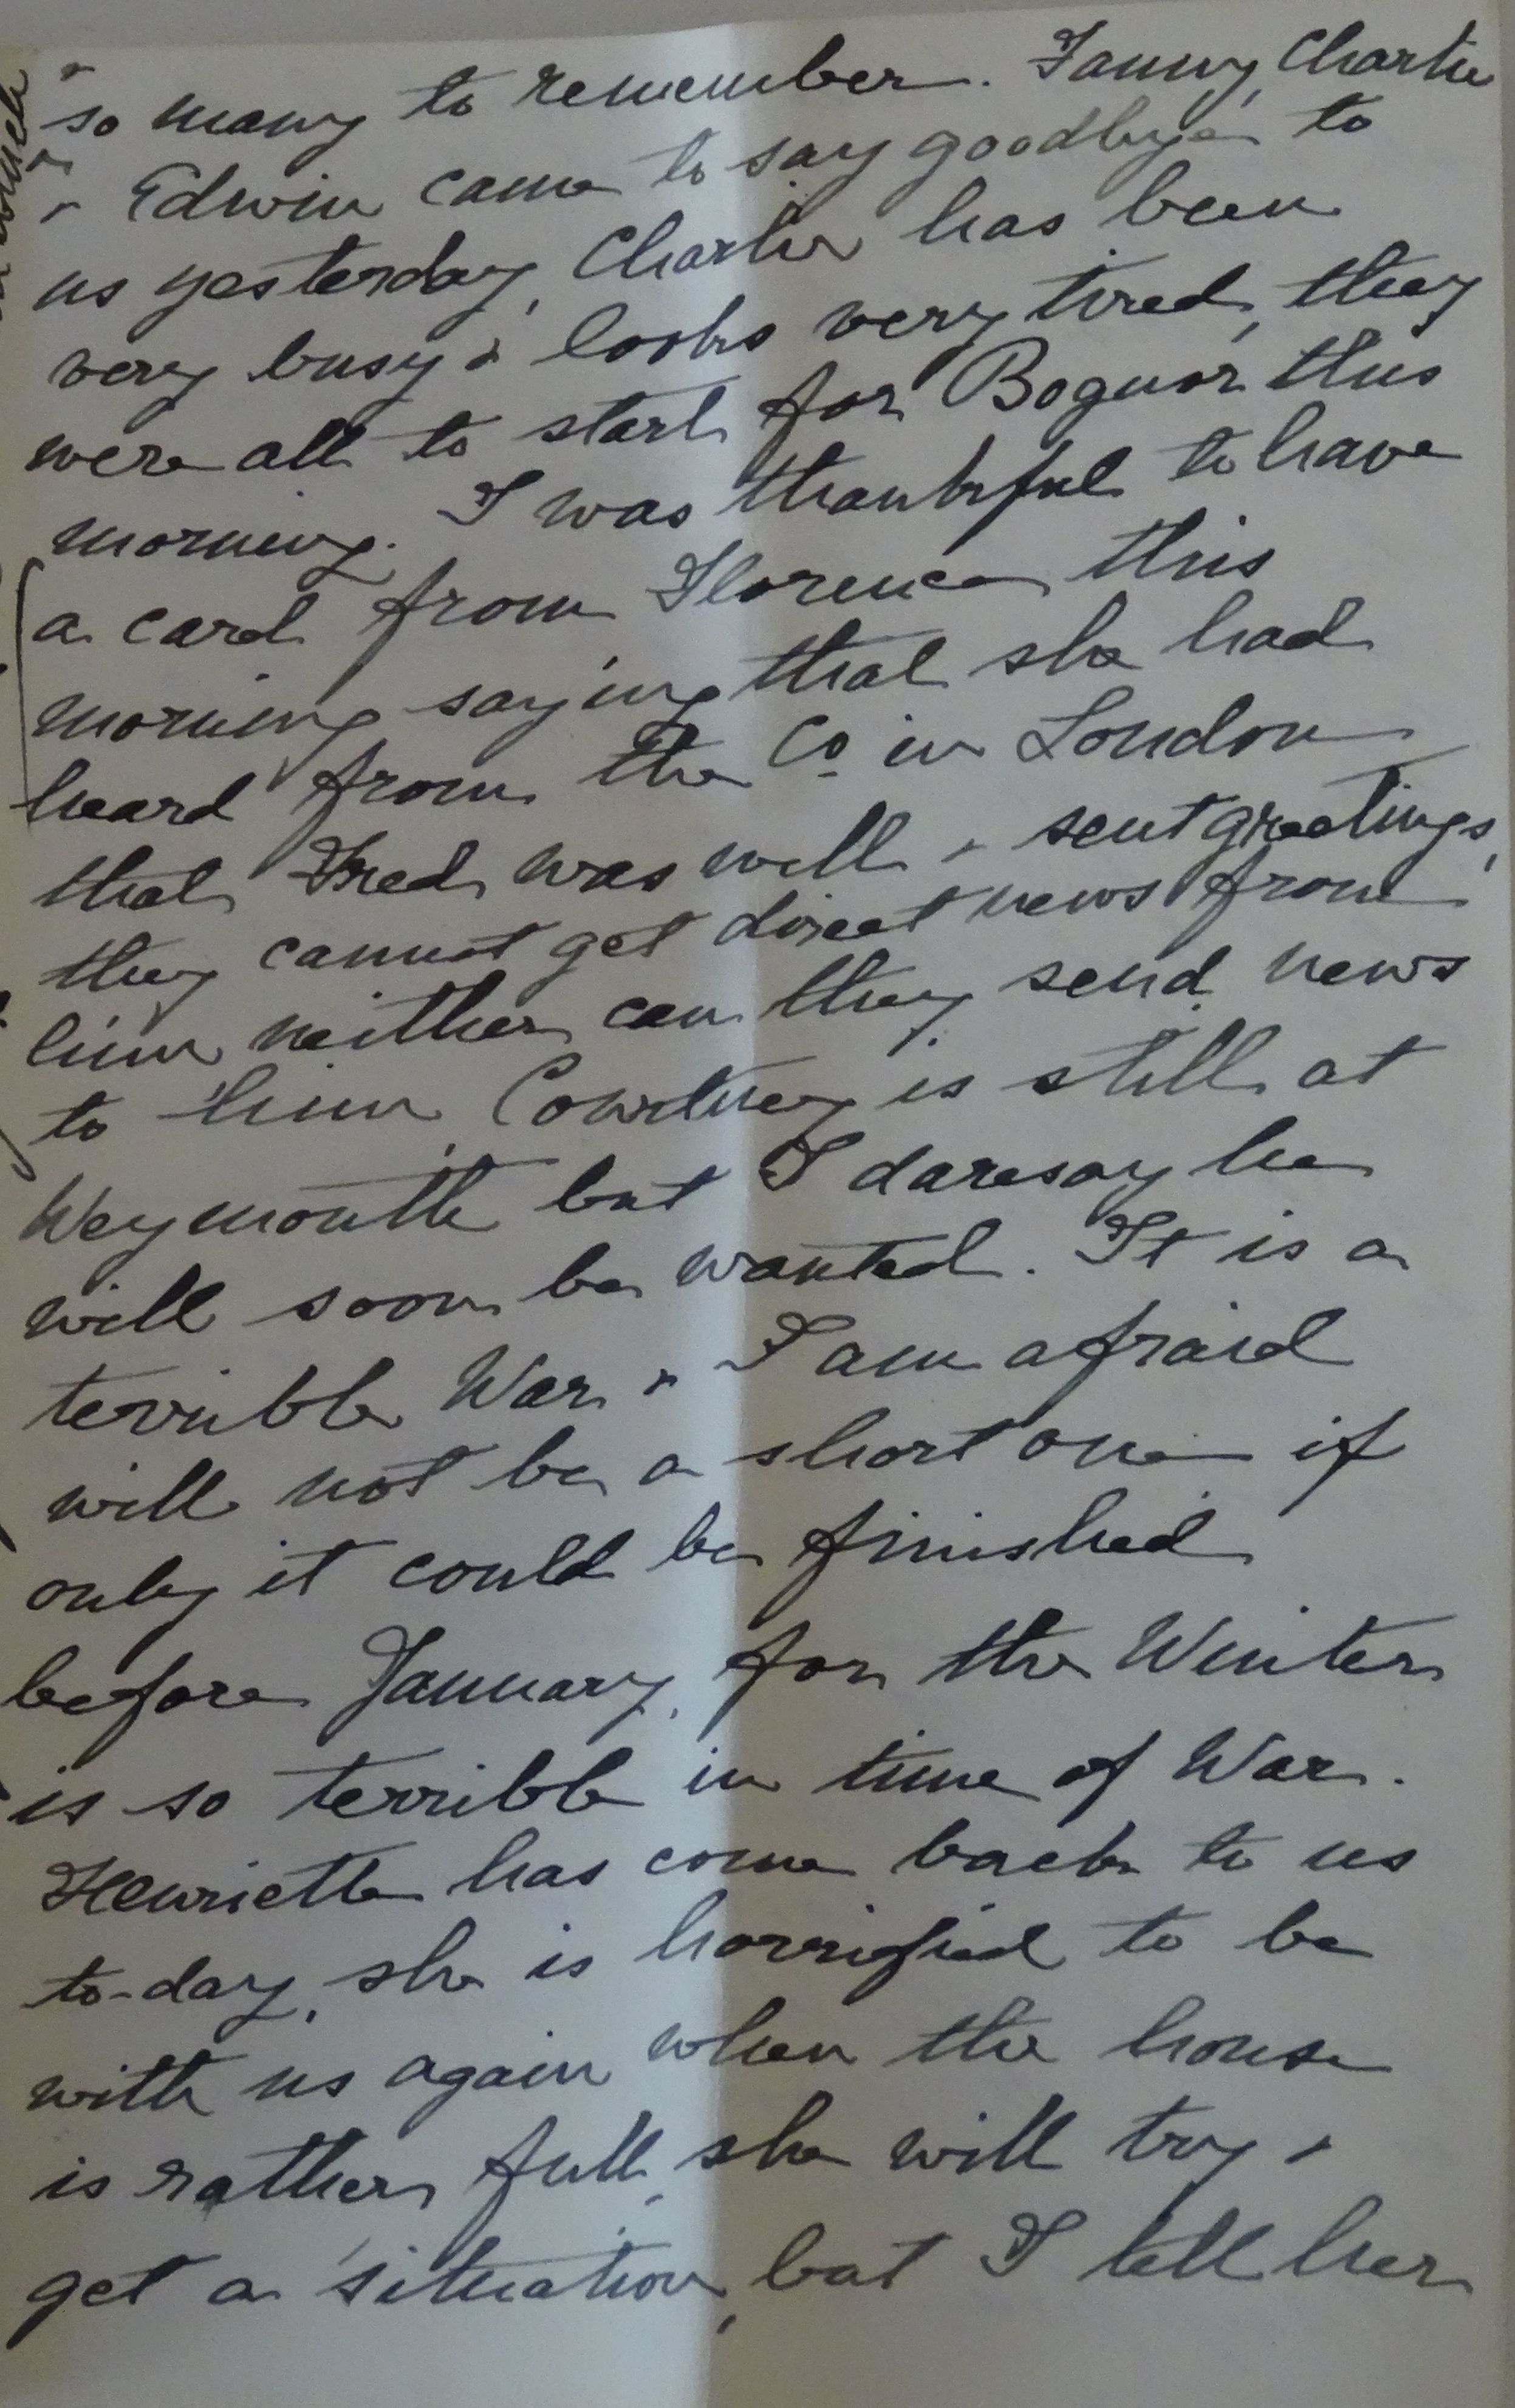 so many to remember. Fanny, Charlie
& Edwin came to say goodbye to
us yesterday, Charlie has been
very busy & looks very tired, they
were all to start for Bognor this
morning. I was thankful to have
a card from Florence this
morning saying that she had
heard from the Co in London
that Fred was well & sent greetings,
they cannot get direct news from
him neither can they send news
to him, Courtney is still at
Weymouth but I daresay he
will soon be wanted. It is a
terrible War & I am afraid
will not be a short one if
only it could be finished
before January, for the Winter
is so terrible in time of War.
Henriette has come back to us
to-day, she is horrified to be
with us again when the house
is rather full, she will try &
get a situation, but I tell her